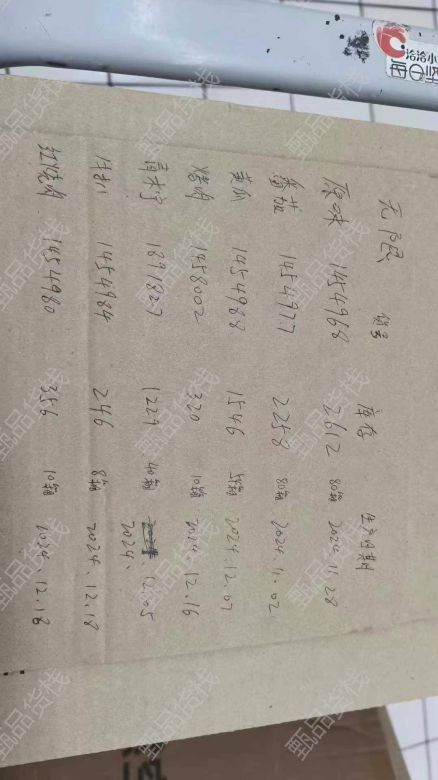 无限 储号 库存 生产日期
原味 1454968 2612 80箱 2024.11.28
番茄 1454977 2258 80箱 2024.11.02
黄瓜 1454988 1546 51箱 2024.12.07
烧烤 1458002 320 10箱 2024.12.16
青柠 1897827 1229 40箱 2024.12.05
1454984 246 8箱 2024.12.18
红烧肉 1454980 356 10箱 2024.12.18
洽洽小
甄品货栈